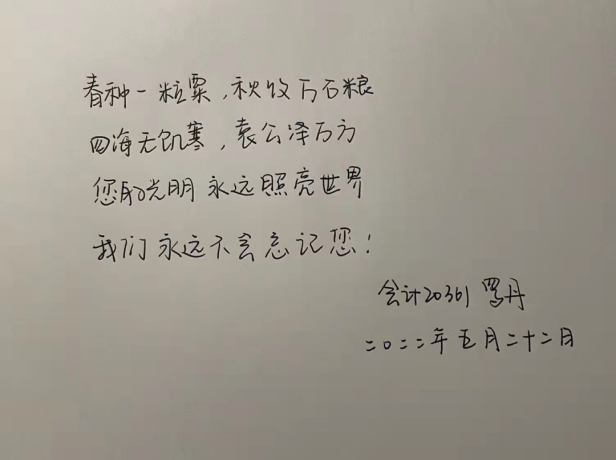 春种一粒粟,秋收万石粮
四海无饥寒,袁公泽万方
您的光明永远照亮世界
我们永远不会忘记您!
会计20361 罗丹
二〇二二年五月二十二日